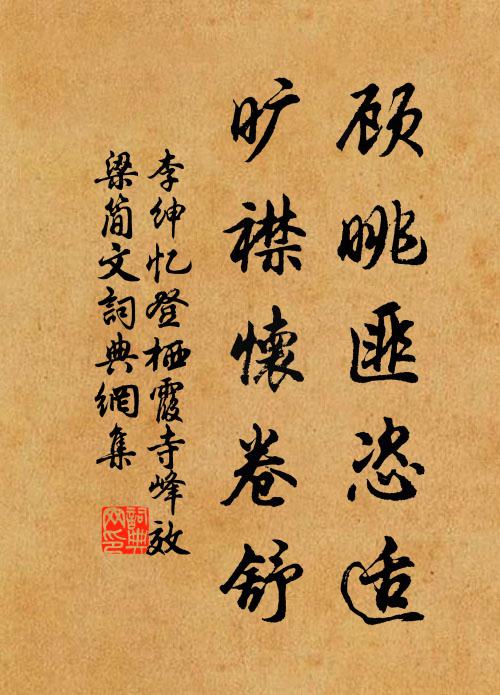 顾眺匪恣适
旷襟懷卷舒
李绅忆登栖霞寺峰效
梁简文詞典網集
詞典
网印